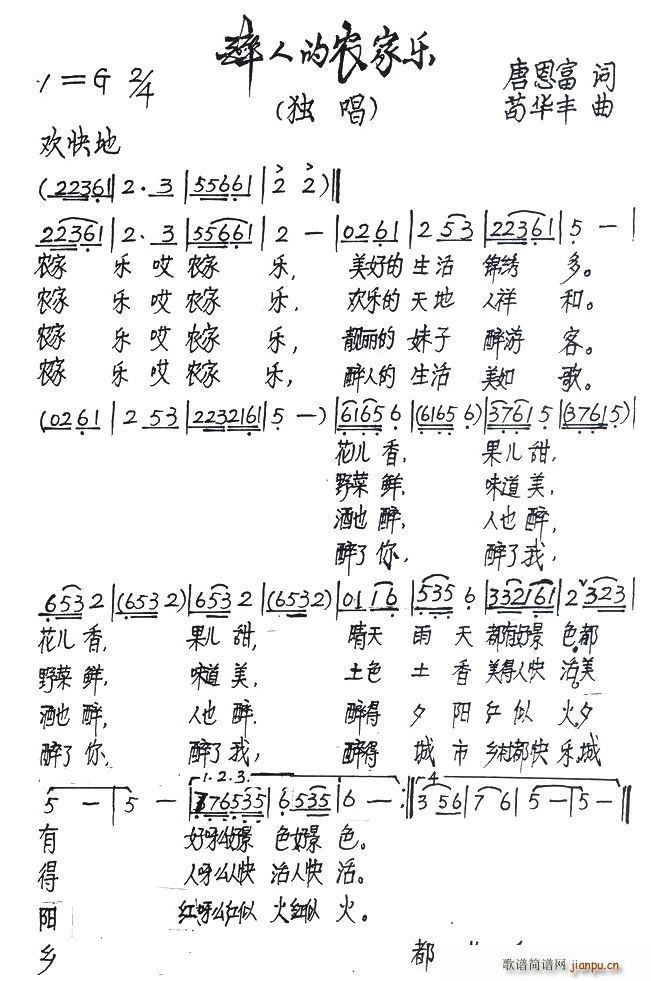 醉人的农家乐
1=G 2/4
(独唱)
唐恩富 词
苟华丰 曲
欢快地
(22361|2·3|55661|2 2)‖
22361|2·3|55661|2 —|0261|2 53|22361|5 —|
农家 乐 哎 农家 乐, 美好的 生活 锦绣 多。
农家 乐 哎 农家 乐, 欢乐的 天地 人祥 和。
农家 乐 哎 农家 乐, 靓丽的 妹子 醉游 客。
农家 乐 哎 农家 乐, 醉人的 生活 美如 歌。
(0261|2 53|2232161|5 —)|6165 6|(6165 6)|3761 5|(3761 5)|
花儿 香, 果儿 甜,
野菜 鲜, 味道 美,
酒也 醉, 人也 醉,
醉了 你, 醉了 我,
653 2|(653 2)|653 2|(653 2)|0116|535 6|332161|2 323|
花儿 香, 果儿 甜, 晴天 雨 天 都有好景 色,都
野菜 鲜, 味道 美, 土色 土 香 美得人快 活,美
酒也 醉, 人也 醉, 醉得 夕 阳 红 似 火,夕
醉了 你, 醉了 我, 醉得 城 市 乡村都快 乐,城
1.2.3.
4
5 —|5 —|376535|6 535|6 —:‖3 56|7 6|5 —|5 —‖
有 好呀么好景 色好景 色。
得 人呀么人快 活人快 活。
阳 红呀么红似 火红似 火。
乡 都
歌谱简谱网
jianpu.cn